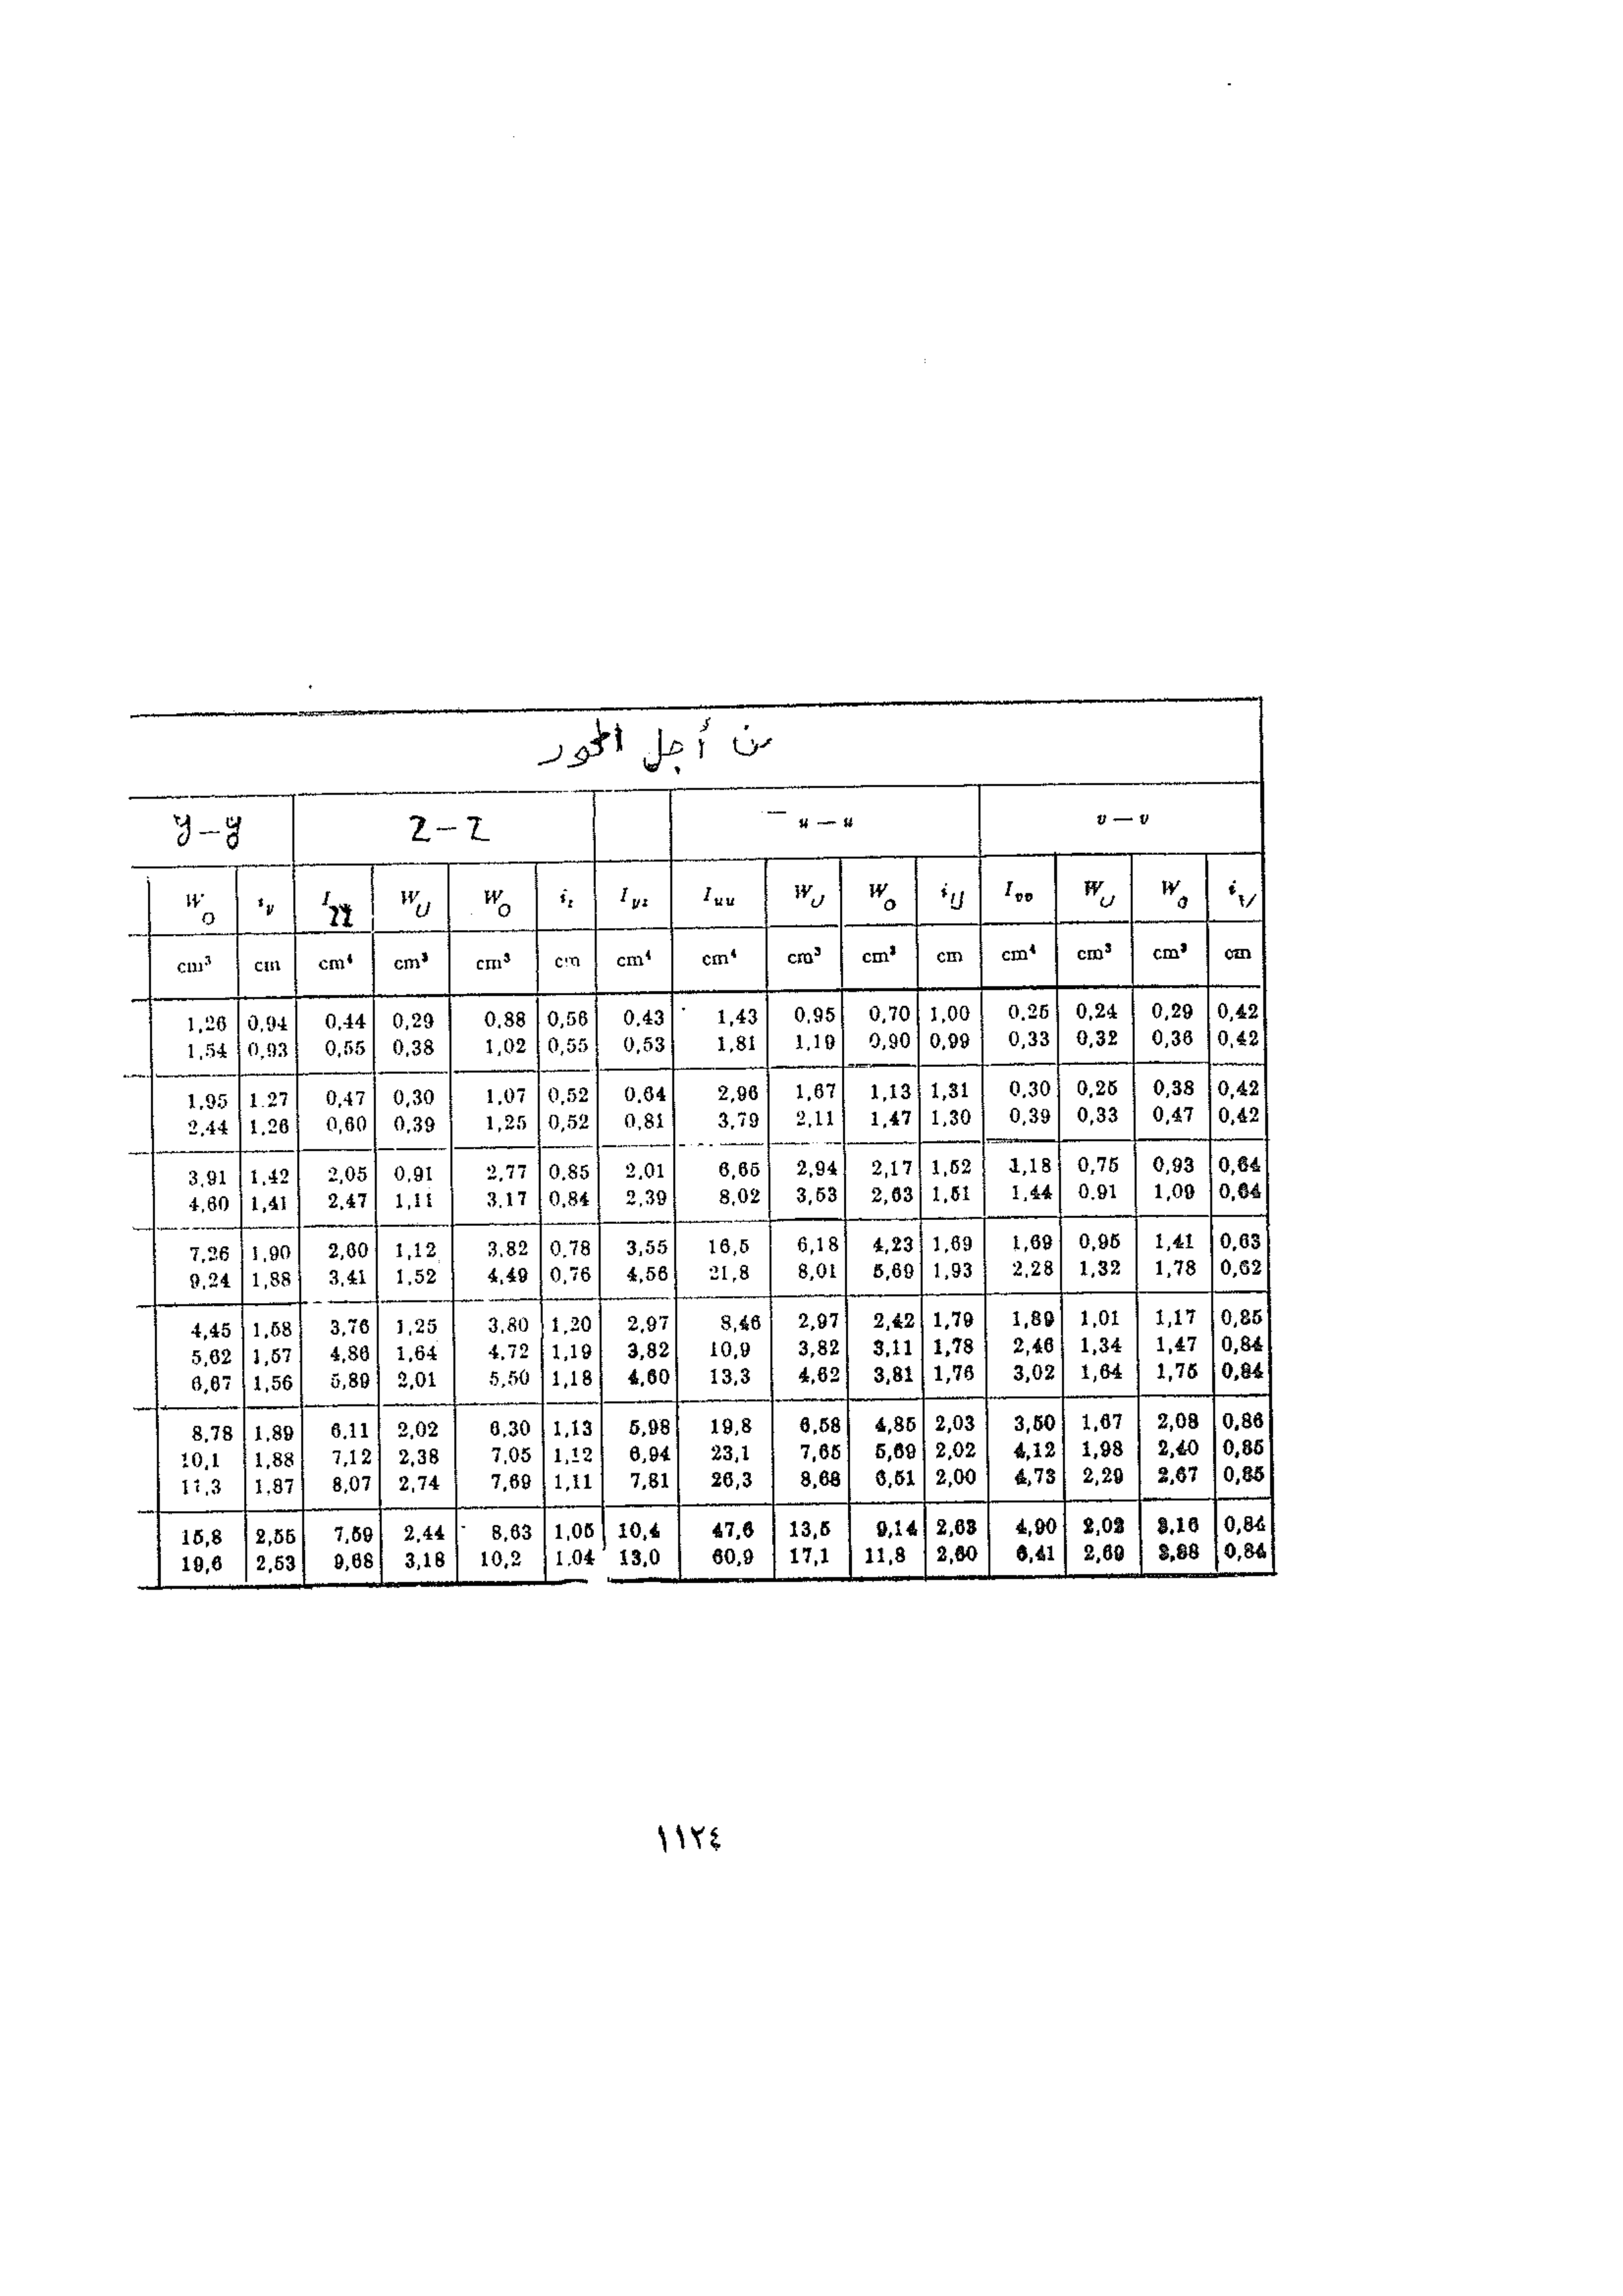 من أجل المحور
y-y Z-Z u — u v — v
W O i y I ZZ W U W O i z I yz I uu W U W O i U I vv W U W O i V
cm³ cm cm⁴ cm³ cm³ cm cm⁴ cm⁴ cm³ cm³ cm cm⁴ cm³ cm³ cm
1,26 0,94 0,44 0,29 0,88 0,56 0,43 1,43 0,95 0,70 1,00 0,25 0,24 0,29 0,42
1,54 0,93 0,55 0,38 1,02 0,55 0,53 1,81 1,19 0,90 0,99 0,33 0,32 0,36 0,42
1,95 1.27 0,47 0,30 1,07 0,52 0,64 2,96 1,67 1,13 1,31 0,30 0,25 0,38 0,42
2,44 1,26 0,60 0,39 1,25 0,52 0,81 3,79 2,11 1,47 1,30 0,39 0,33 0,47 0,42
3,91 1,42 2,05 0,91 2,77 0,85 2,01 6,65 2,94 2,17 1,52 1,18 0,75 0,93 0,64
4,60 1,41 2,47 1,11 3,17 0,84 2,39 8,02 3,53 2,63 1,51 1,44 0.91 1,09 0,64
7,26 1,90 2,60 1,12 3,82 0,78 3,55 16,5 6,18 4,23 1,69 1,69 0,95 1,41 0,63
9,24 1,88 3,41 1,52 4,49 0,76 4,56 21,8 8,01 5,69 1,93 2,28 1,32 1,78 0,62
4,45 1,58 3,76 1,25 3,80 1,20 2,97 8,46 2,97 2,42 1,79 1,89 1,01 1,17 0,85
5,62 1,57 4,86 1,64 4,72 1,19 3,82 10,9 3,82 3,11 1,78 2,46 1,34 1,47 0,84
6,67 1,56 5,89 2,01 5,50 1,18 4,60 13,3 4,62 3,81 1,76 3,02 1,64 1,75 0,84
8,78 1,89 6,11 2,02 6,30 1,13 5,98 19,8 6,58 4,85 2,03 3,50 1,67 2,08 0,86
10,1 1,88 7,12 2,38 7,05 1,12 6,94 23,1 7,65 5,69 2,02 4,12 1,98 2,40 0,85
11,3 1,87 8,07 2,74 7,69 1,11 7,81 26,3 8,68 6,51 2,00 4,73 2,29 2,67 0,85
15,8 2,55 7,59 2,44 8,63 1,05 10,4 47,6 13,5 9,14 2,63 4,90 2,03 3,16 0,84
19,6 2,53 9,68 3,18 10,2 1.04 13,0 60,9 17,1 11,8 2,60 6,41 2,69 3,88 0,84
١١٢٤